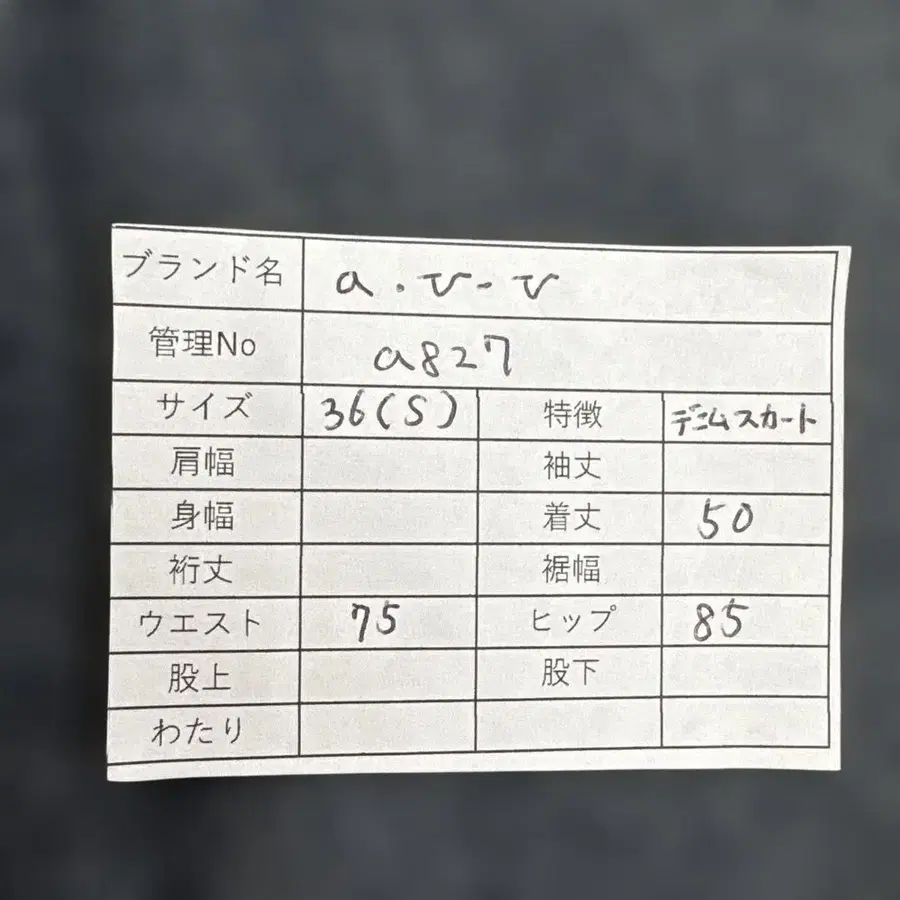 ブランド名 a.v-v
管理No a827
サイズ 36(S) 特徴 デニムスカート
肩幅 袖丈
身幅 着丈 50
裄丈 裾幅
ウエスト 75 ヒップ 85
股上 股下
わたり